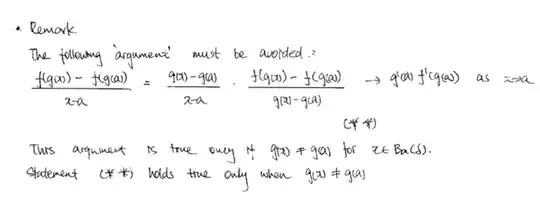 • Remark
The following 'argument' must be avoided :
f(g(x)) - f(g(a)) / x-a = g(x) - g(a) / x-a · f(g(x)) - f(g(a)) / g(x) - g(a) → g'(a) f'(g(a)) as x→a
(**)
This argument is true only if g(x) ≠ g(a) for x ∈ Ba(δ).
Statement (**) holds true only when g(x) ≠ g(a)